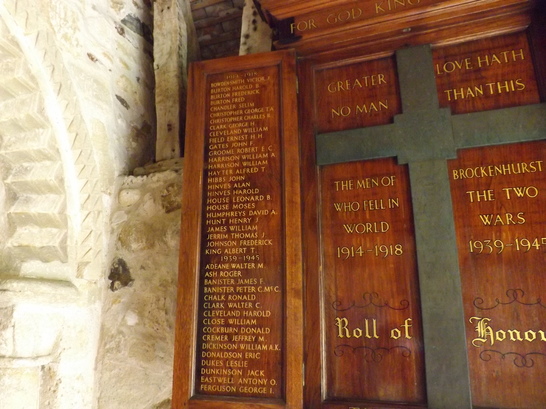 FOR GOD KING
1914-1918
BOWDEN-SMITH VICTOR
BURTON HAROLD B.
BURTON FREDERICK
BURTON FRED
CHANDLER SELIM
CHRISTOPHER GEORGE
CHRISTOPHER CHARLES
CLARK GEORGE H.
CLEVELAND WILLIAM
FIELD ERNEST H.H.
GATES JOHN F.
GROOME ROBERT E.C.
HARRISON WILLIAM A.
HARRISON WILLIAM
HAYTER ALFRED T.
HIBBS JOHN
HINVES ALAN
HINVES HAROLD
HOUSE LEONARD B.
HOUSE MOSES
HUMPHREYS DAVID A.
HUNT HENRY J.
JAMES WILLIAM
JERRIM THOMAS J.
JOHNSON FREDERICK
KING ALBERT T.
1939-1945
ADEANE WALTER M.
ASH ROGER
BANISTER JAMES F.
BANISTER PETER C.Mc.C.
CHALK RONALD
CLARK WALTER C.
CLEVELAND HAROLD
CLOSE WILLIAM
COCKBURN DONALD
CREMER JEFFREY M.
DICKINSON WILLIAM A.K.
DONALDSON ERIC
DUKES LESLIE
DUNKINSON JACK
EASTWELL ANTONY O.
FERGUSON GEORGE I.
GREATER
NO MAN
LOVE HATH
THAN THIS
THE MEN OF
WHO FELL IN
WORLD
1914-1918
BROCKENHURST
THE TWO
WARS
1939-1945
Roll of
Honour